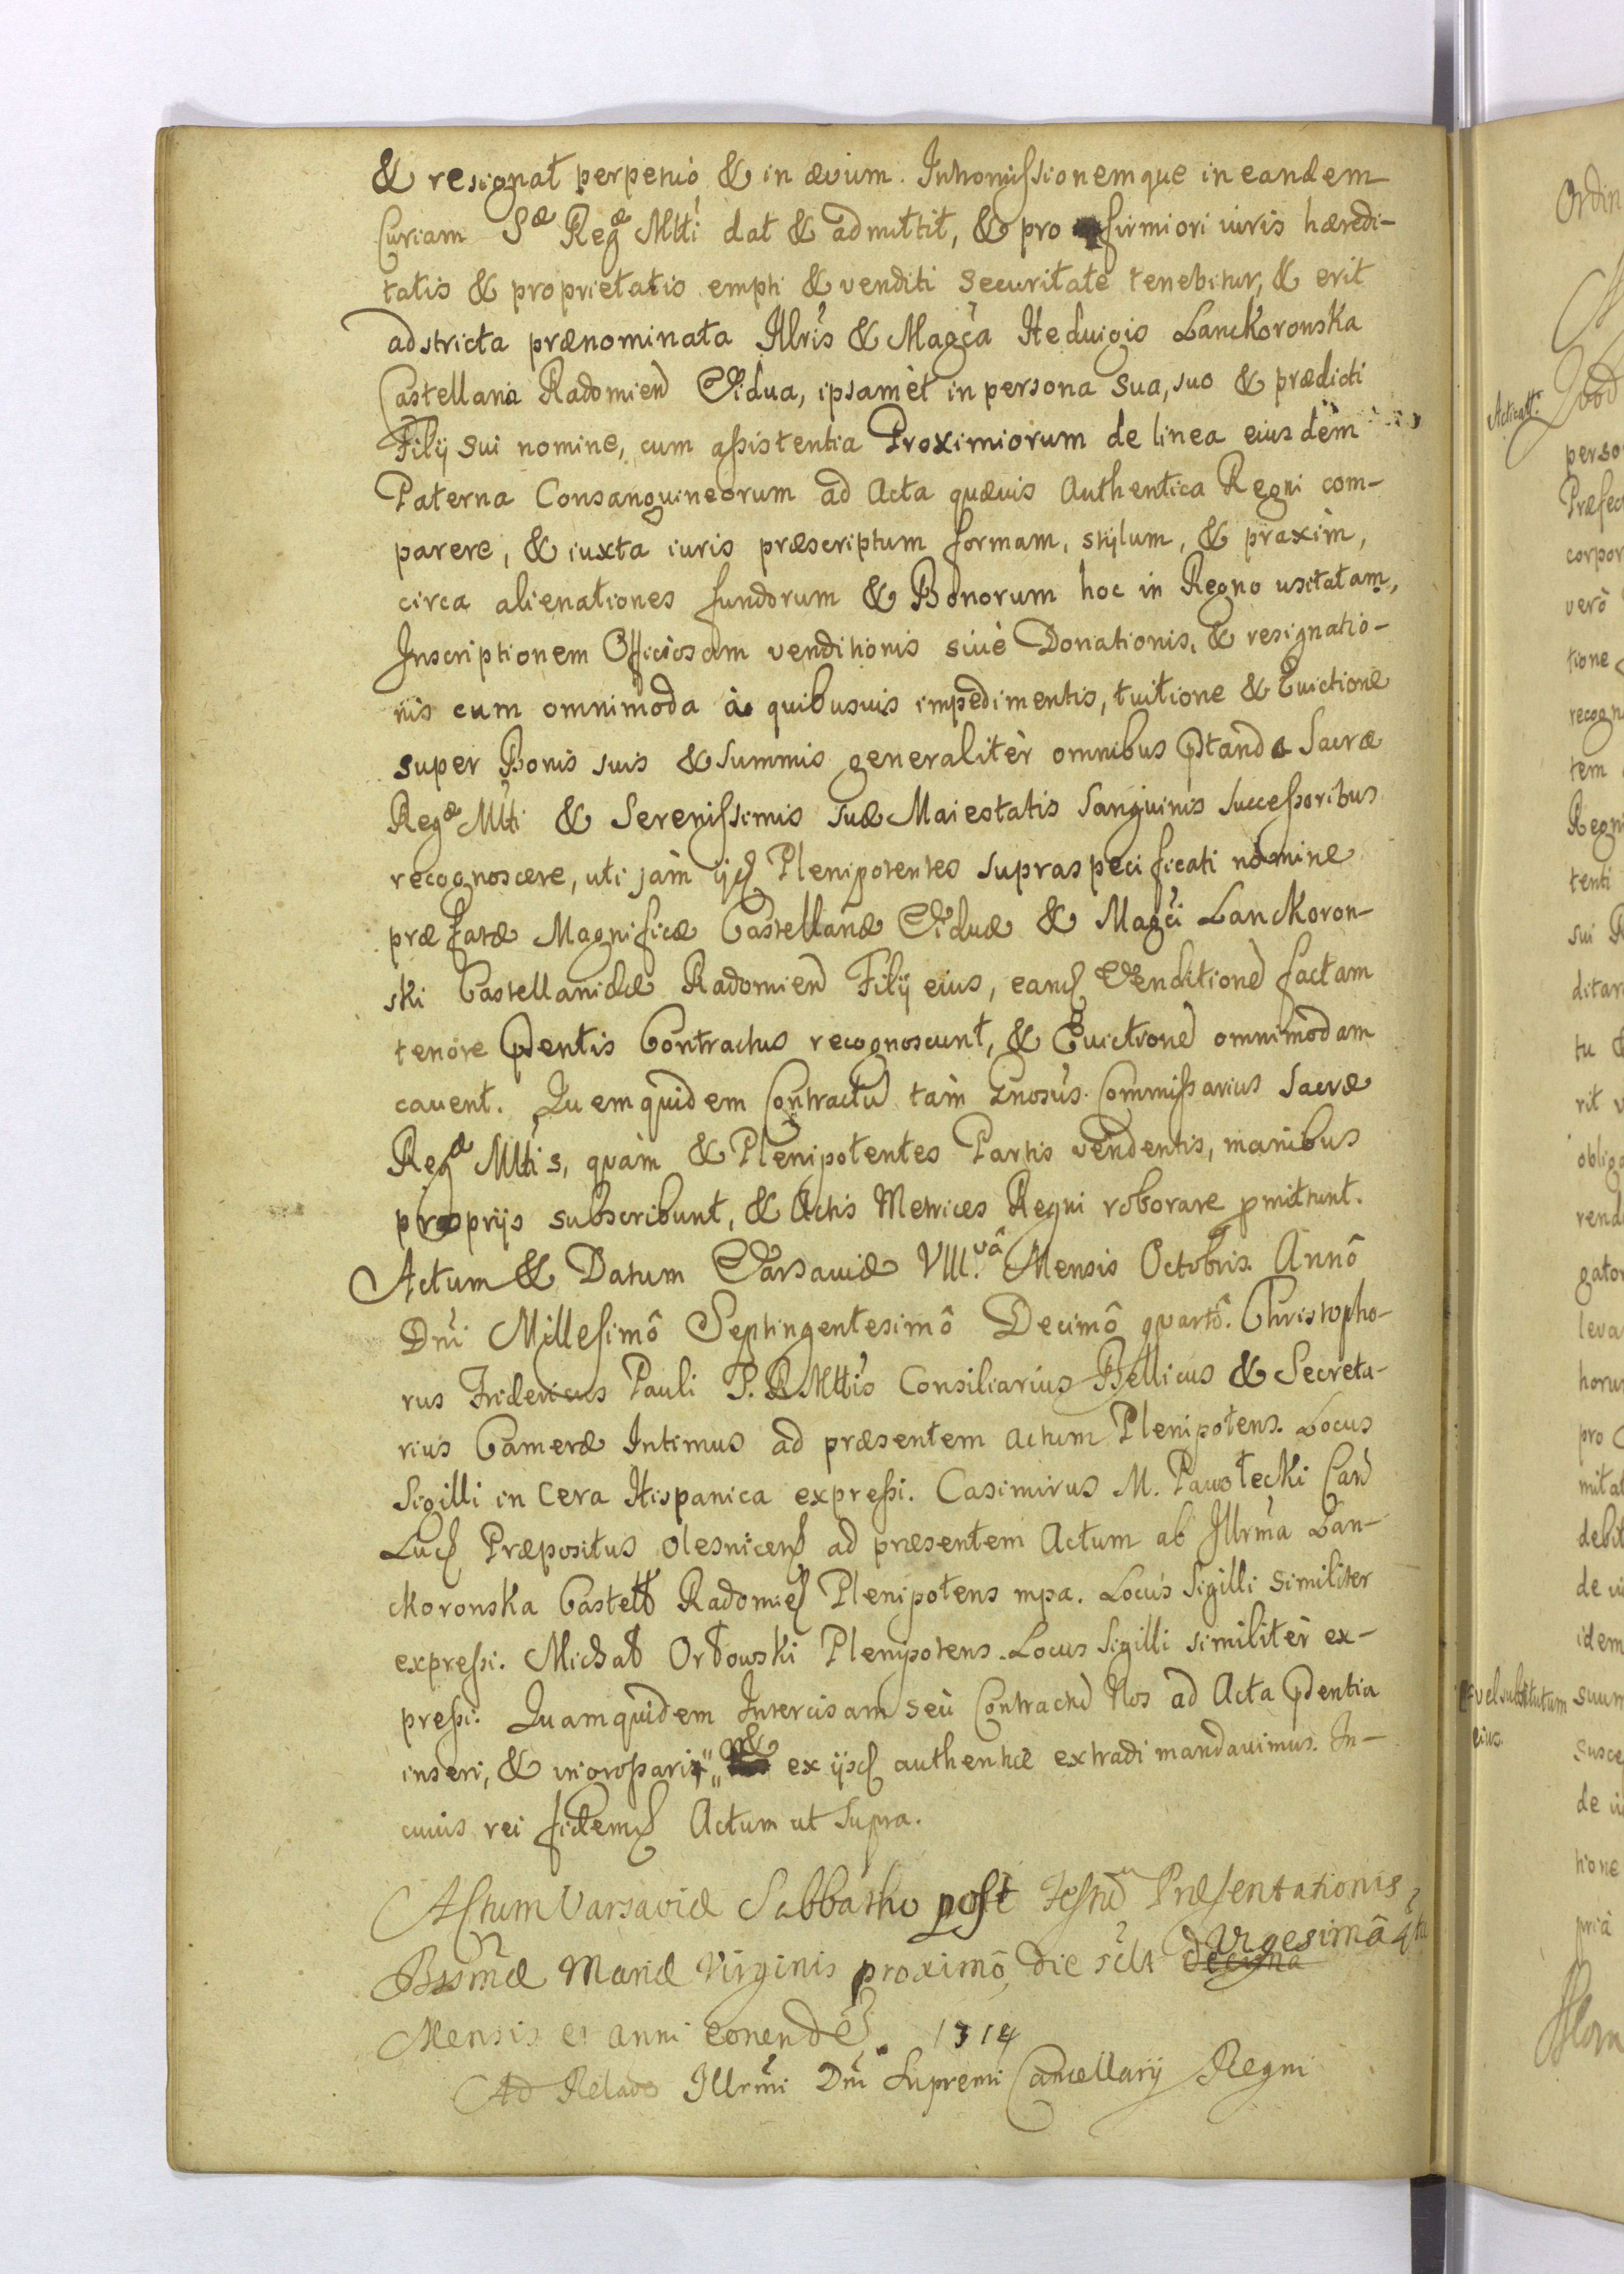 & resignat perpetuò & in ævium. Intromissionemque in eandem
Curiam Sæ Regæ Mtti dat & admittit, & pro firmiori iuris hæredi-
tatis & proprietatis empti & venditi securitate tenebitur, & erit
adstricta prænominata Illris & Magca Heduigis Lanckoronska
Castellana Radomien Vidua, ipsamèt in persona sua, suo & prædicti
Filij sui nomine, cum assistentia Proximiorum de linea eiusdem
Paterna Consanguineorum ad Acta quævis Authentica Regni com-
parere, & iuxta iuris præscriptum formam, stylum, & praxim,
circa alienationes fundorum & Bonorum hoc in Regno usitatam,
Inscriptionem Officiosam venditionis siuè Donationis, & resignatio-
nis cum omnimoda à quibusuis impedimentis, tuitione & Euictione
super Bonis suis & summis generalitèr omnibus pstanda Sacræ
Regæ Mtti & Serenissimis suæ Maiestatis Sanguinis Successoribus
recognoscere, uti jàm ijd Plenipotentes supraspecificati nomine
præfatæ Magnificæ Castellanæ Viduæ & Magci Lanckoron-
ski Castellanidæ Radomien Filij eius, eand Venditione factam
tenore pdentis Contractus recognoscunt, & Euictione omnimodam
cauent. Quemquidem Contractu tàm Gnosus Commissarius Sacræ
Regæ Mttis, quàm & Plenipotentes Partis vendentis, manibus
proprijs subscribunt, & Actis Metrices Regni roborare pmittunt.
Actum & Datum Varsauiæ VIII.vâ Mensis Octobris Annô
Dni Millesimô Septingentesimô Decimô quartô. Christopho-
rus Fridericus Pauli P. R Mttis Consiliarius Bellicus & Secreta-
rius Cameræ Intimus ad præsentem actum Plenipotens. Locus
Sigilli in Cera Hispanica expressi. Casimirus M. Pawłecki Can
Luc Præpositus Olesnicens ad præsentem Actum ab Illrma Lan-
ckoronska Castell Radomien Plenipotens mpa. Locus Sigilli similiter
expressi. Michał Orłowski Plenipotens. Locus Sigilli similitèr ex-
pressi. Quamquidem Intercisam seù Contractu Nos ad Acta pdentia
inseri, & ex ijsd authenticè extradi mandauimus. In-
cuius rei fidem Actum ut supra.
Actum Varsaviæ Sabbatho post Festum Præsentationis
Bssmæ Mariæ Virginis proximô, die scilt decima Vigesimâ 4ta
Mensis et anni eorunde. 1714
Ad Relaõ Illrmi Dni Supremi Cancellarij Regni